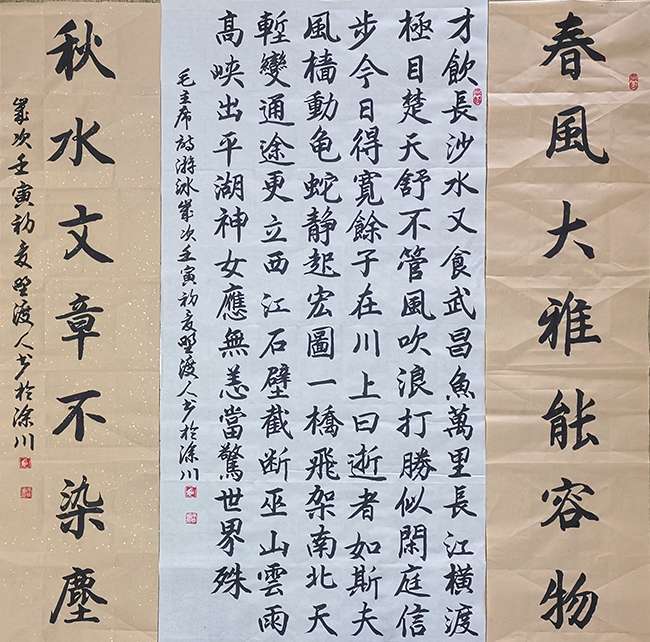 春風大雅能容物
才飲長沙水又食武昌魚萬里長江橫渡
極目楚天舒不管風吹浪打勝似閑庭信
步今日得寬餘子在川上曰逝者如斯夫
風檣動龟蛇靜起宏圖一橋飛架南北天
塹變通途更立西江石壁截断巫山雲雨
高峽出平湖神女應無恙當驚世界殊
毛主席詩游泳歲次壬寅初夏野渡人书於涂川
秋水文章不染塵
歲次壬寅初夏野渡人书於涂川